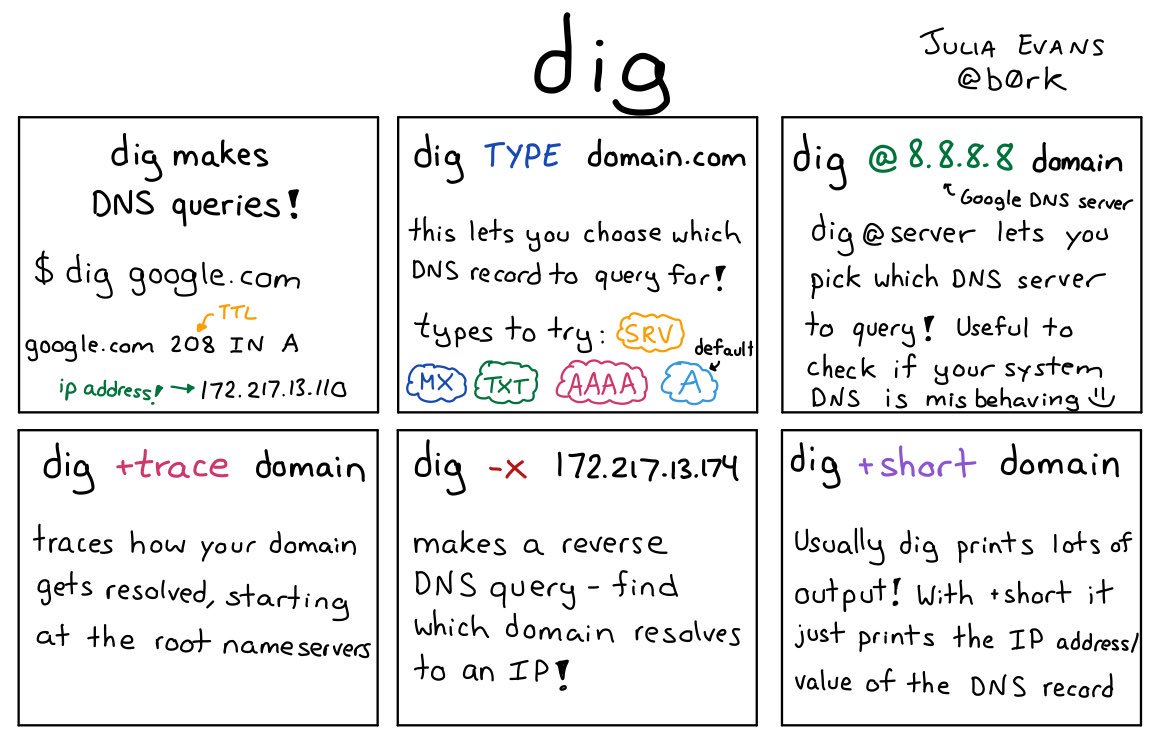 dig
JULIA EVANS
@b0rk
dig makes
DNS queries!
$ dig google.com
TTL
google.com 208 IN A
ip address! → 172.217.13.110
dig TYPE domain.com
this lets you choose which
DNS record to query for!
types to try: SRV
default
MX TXT AAAA A
dig @8.8.8.8 domain
Google DNS server
dig @server lets you
pick which DNS server
to query! Useful to
check if your system
DNS is misbehaving
dig +trace domain
traces how your domain
gets resolved, starting
at the root nameservers
dig -x 172.217.13.174
makes a reverse
DNS query - find
which domain resolves
to an IP!
dig +short domain
Usually dig prints lots of
output! With +short it
just prints the IP address/
value of the DNS record